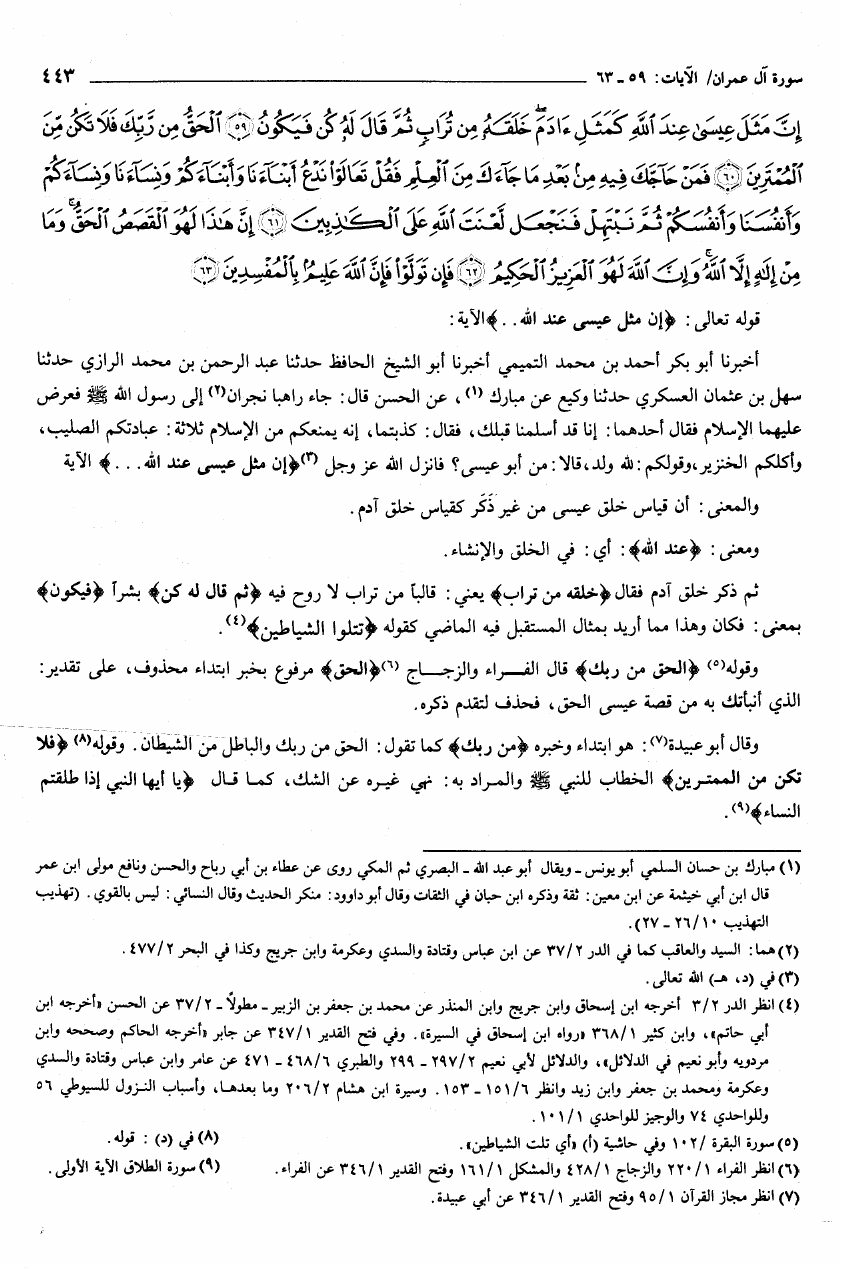 سورة آل عمران/ الآيات: ٥٩ ـ ٦٣ ٤٤٣
إِنَّ مَثَلَ عِيسَىٰ عِندَ اللَّهِ كَمَثَلِ ءَادَمَ ۖ خَلَقَهُۥ مِن تُرَابٍ ثُمَّ قَالَ لَهُۥ كُن فَيَكُونُ ﴿٥٩﴾ الْحَقُّ مِن رَّبِّكَ فَلَا تَكُن مِّنَ
الْمُمْتَرِينَ ﴿٦٠﴾ فَمَنْ حَاجَّكَ فِيهِ مِنۢ بَعْدِ مَا جَاءَكَ مِنَ الْعِلْمِ فَقُلْ تَعَالَوْا نَدْعُ أَبْنَاءَنَا وَأَبْنَاءَكُمْ وَنِسَاءَنَا وَنِسَاءَكُمْ
وَأَنفُسَنَا وَأَنفُسَكُمْ ثُمَّ نَبْتَهِلْ فَنَجْعَل لَّعْنَتَ اللَّهِ عَلَى الْكَاذِبِينَ ﴿٦١﴾ إِنَّ هَٰذَا لَهُوَ الْقَصَصُ الْحَقُّ ۚ وَمَا
مِنْ إِلَٰهٍ إِلَّا اللَّهُ ۚ وَإِنَّ اللَّهَ لَهُوَ الْعَزِيزُ الْحَكِيمُ ﴿٦٢﴾ فَإِن تَوَلَّوْا فَإِنَّ اللَّهَ عَلِيمٌۢ بِالْمُفْسِدِينَ ﴿٦٣﴾
قوله تعالى: ﴿إن مثل عيسى عند الله. .﴾الآية:
أخبرنا أبو بكر أحمد بن محمد التميمي أخبرنا أبو الشيخ الحافظ حدثنا عبد الرحمن بن محمد الرازي حدثنا
سهل بن عثمان العسكري حدثنا وكيع عن مبارك (١)، عن الحسن قال: جاء راهبا نجران(٢) إلى رسول الله ﷺ فعرض
عليهما الإسلام فقال أحدهما: إنا قد أسلمنا قبلك، فقال: كذبتما، إنه يمنعكم من الإسلام ثلاثة: عبادتكم الصليب،
وأكلكم الخنزير،وقولكم:لله ولد،قالا:من أبو عيسى؟ فانزل الله عز وجل (٣)﴿إن مثل عيسى عند الله. . .﴾ الآية
والمعنى: أن قياس خلق عيسى من غير ذَكَر كقياس خلق آدم.
ومعنى: ﴿عند الله﴾: أي: في الخلق والإنشاء.
ثم ذكر خلق آدم فقال﴿خلقه من تراب﴾ يعني: قالباً من تراب لا روح فيه ﴿ثم قال له كن﴾ بشراً ﴿فيكون﴾
بمعنى: فكان وهذا مما أريد بمثال المستقبل فيه الماضي كقوله ﴿تتلوا الشياطين﴾(٤).
وقوله(٥) ﴿الحق من ربك﴾ قال الفـــراء والزجـــاج (٦)﴿الحق﴾ مرفوع بخبر ابتداء محذوف، على تقدير:
الذي أنبأتك به من قصة عيسى الحق، فحذف لتقدم ذكره.
وقال أبو عبيدة(٧): هو ابتداء وخبره ﴿من ربك﴾ كما تقول: الحق من ربك والباطل من الشيطان. وقوله(٨) ﴿فلا
تكن من الممترين﴾ الخطاب للنبي ﷺ والمراد به: نهي غيره عن الشك، كما قال ﴿يا أيها النبي إذا طلقتم
النساء﴾(٩).
(١) مبارك بن حسان السلمي أبو يونس ـ ويقال أبو عبد الله ـ البصري ثم المكي روى عن عطاء بن أبي رباح والحسن ونافع مولى ابن عمر
قال ابن أبي خيثمة عن ابن معين: ثقة وذكره ابن حبان في الثقات وقال أبو داوود: منكر الحديث وقال النسائي: ليس بالقوي. (تهذيب
التهذيب ١٠/ ٢٦ ـ ٢٧).
(٢) هما: السيد والعاقب كما في الدر ٢/ ٣٧ عن ابن عباس وقتادة والسدي وعكرمة وابن جريج وكذا في البحر ٢/ ٤٧٧.
(٣) في (د، هـ) الله تعالى.
(٤) انظر الدر ٢/ ٣ أخرجه ابن إسحاق وابن جريج وابن المنذر عن محمد بن جعفر بن الزبير ـ مطولاً ـ ٢/ ٣٧ عن الحسن «أخرجه ابن
أبي حاتم»، وابن كثير ١/ ٣٦٨ «رواه ابن إسحاق في السيرة». وفي فتح القدير ١/ ٣٤٧ عن جابر «أخرجه الحاكم وصححه وابن
مردويه وأبو نعيم في الدلائل»، والدلائل لأبي نعيم ٢/ ٢٩٧ ـ ٢٩٩ والطبري ٦/ ٤٦٨ ـ ٤٧١ عن عامر وابن عباس وقتادة والسدي
وعكرمة ومحمد بن جعفر وابن زيد وانظر ٦/ ١٥١ ـ ١٥٣. وسيرة ابن هشام ٢/ ٢٠٦ وما بعدها، وأسباب النزول للسيوطي ٥٦
وللواحدي ٧٤ والوجيز للواحدي ١/ ١٠١.
(٥) سورة البقرة / ١٠٢ وفي حاشية (أ) «أي تلت الشياطين». (٨) في (د) : قوله.
(٦) انظر الفراء ١/ ٢٢٠ والزجاج ١/ ٤٢٨ والمشكل ١/ ١٦١ وفتح القدير ١/ ٣٤٦ عن الفراء. (٩) سورة الطلاق الآية الأولى.
(٧) انظر مجاز القرآن ١/ ٩٥ وفتح القدير ١/ ٣٤٦ عن أبي عبيدة.